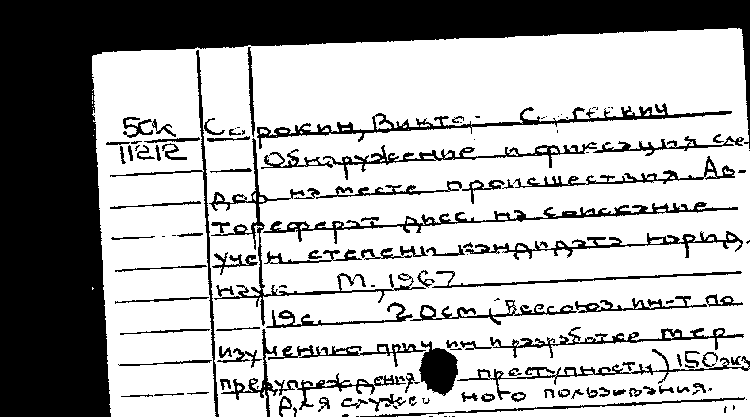 50к Сорокин, Виктор Сергеевич
11212 Обнаружение и фиксация сле-
дов на месте происшествия. Ав-
тореферат дисс. на соискание
учен. степени кандидата юрид.
наук. М., 1967.
19с. 20см (Всесоюз. ин-т по
изучению причин и разработке мер
предупреждения преступности) 150экз
Для служебного пользования.